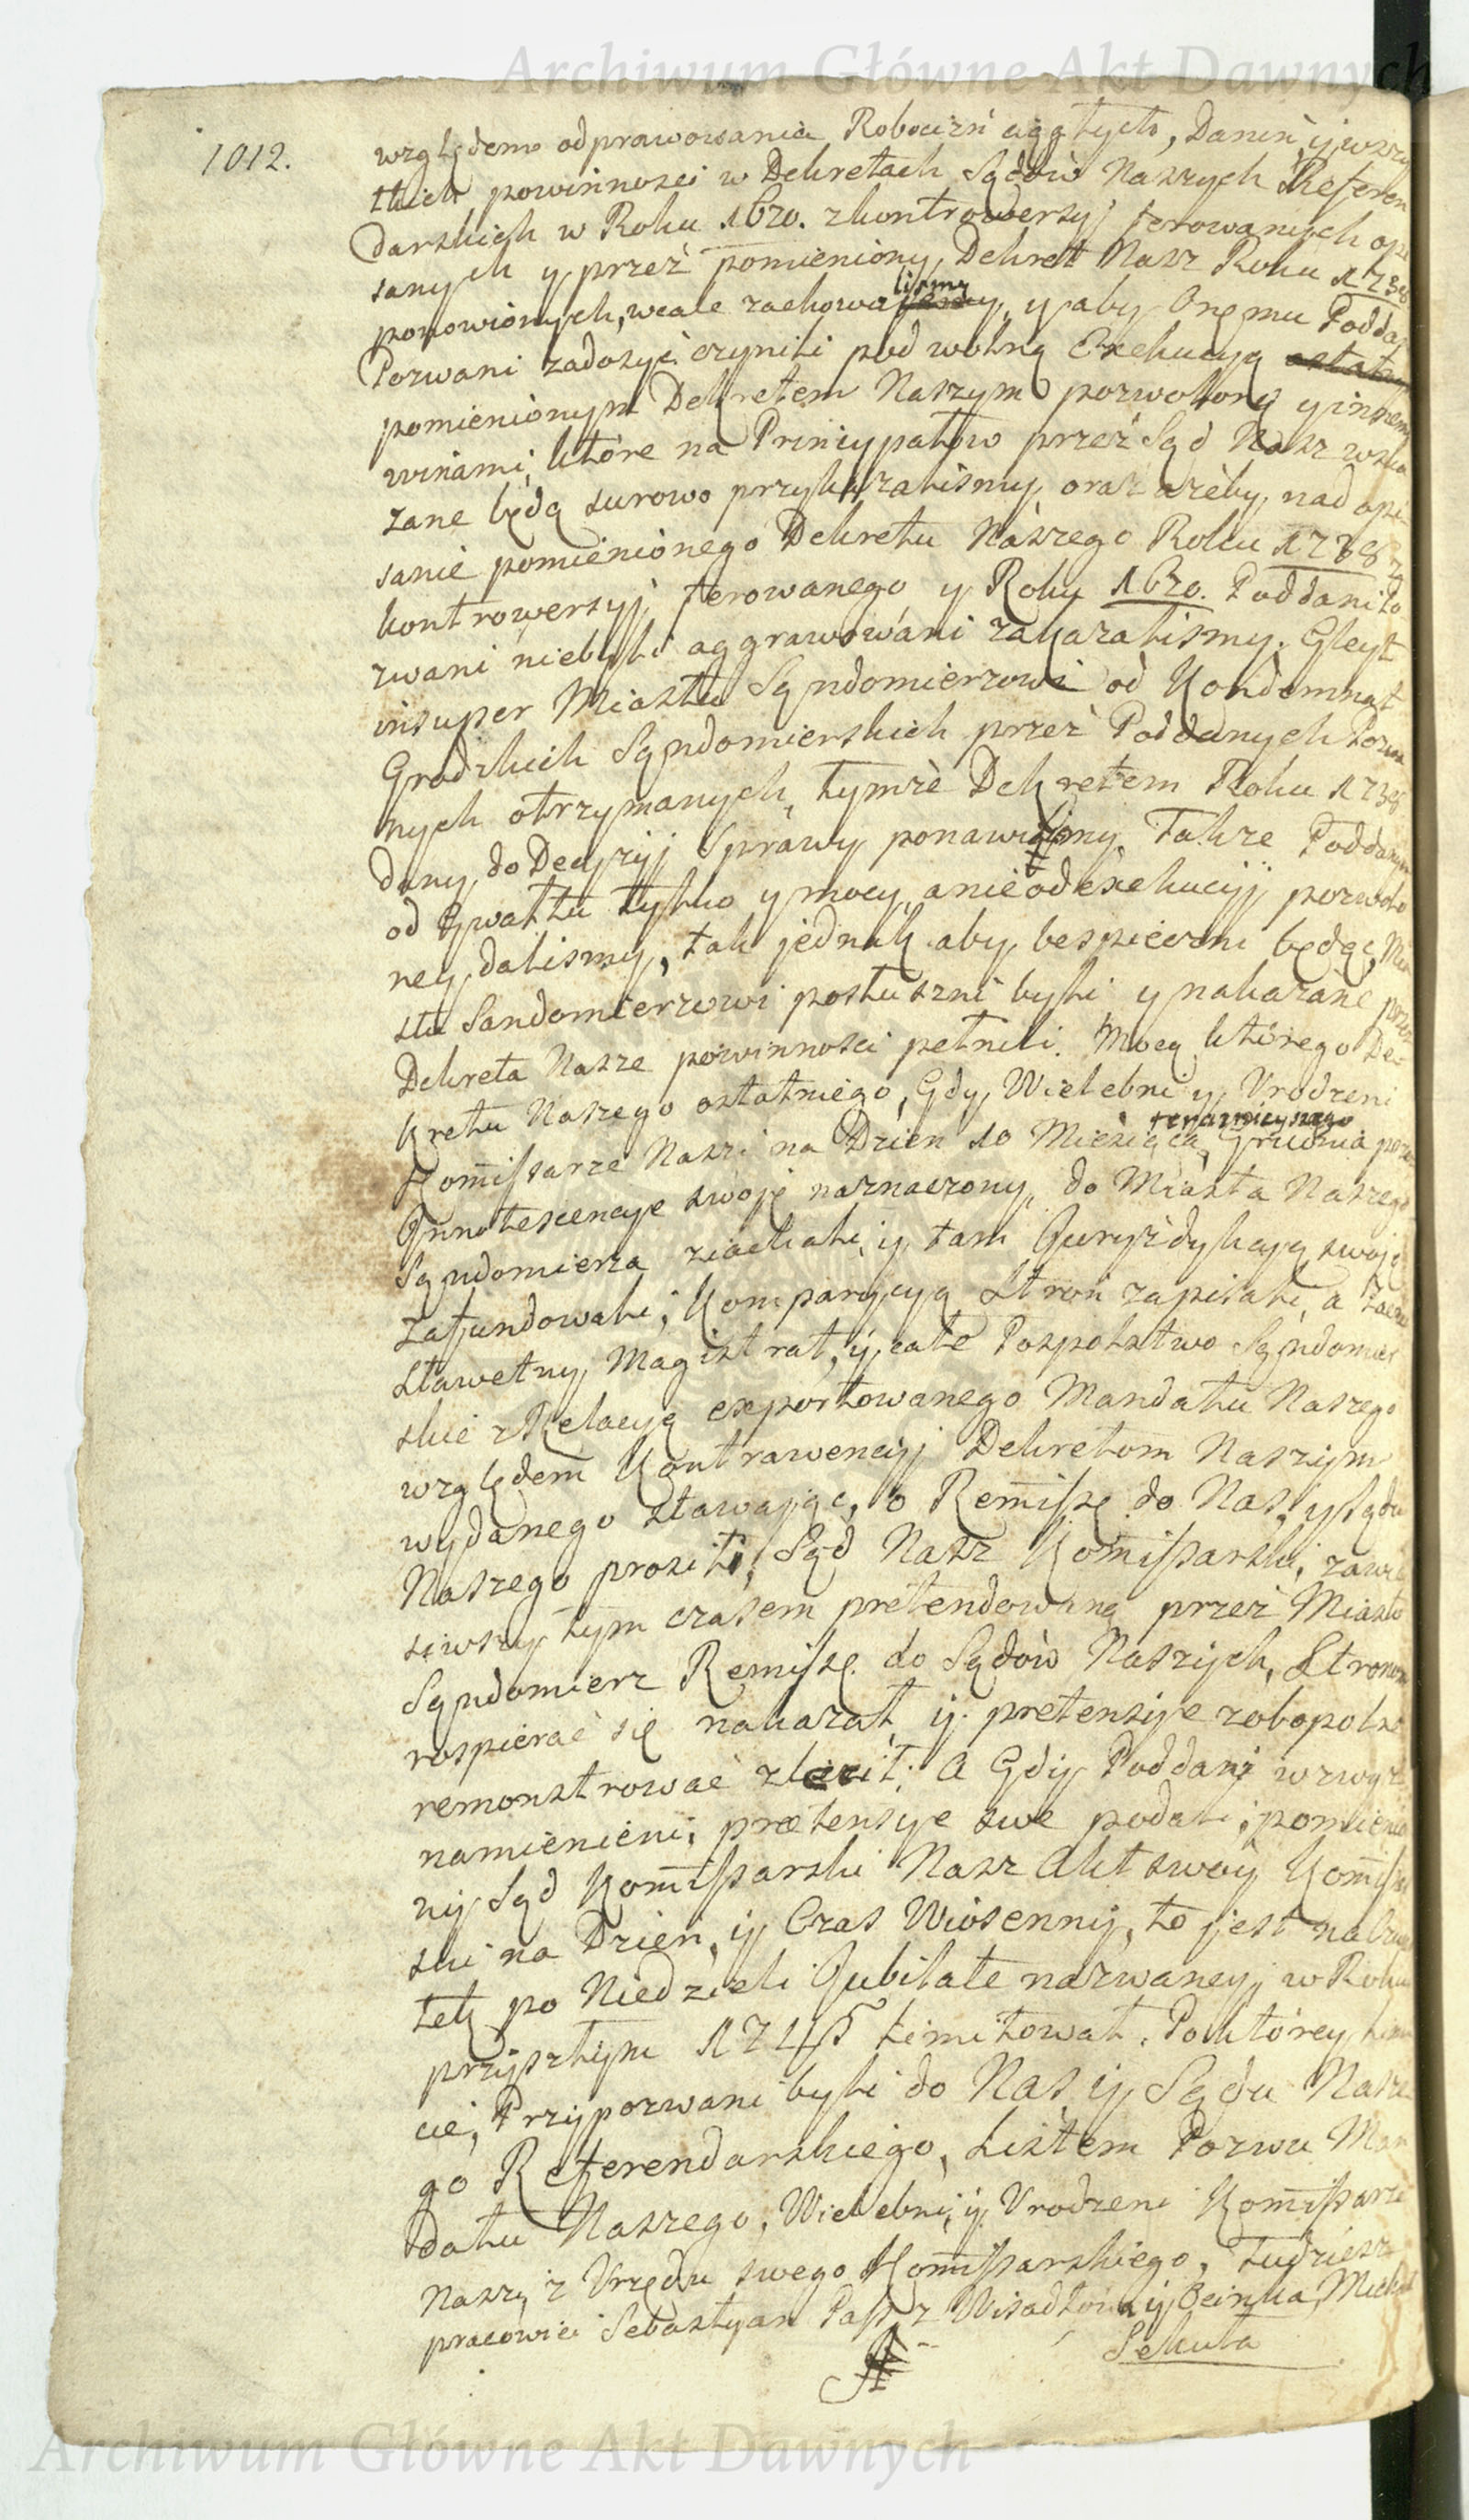 Archiwum Główne Akt Dawnych
1012.
względem odprawowania Roboczń ciągłych, Danin, y wszy
tkich powinnosci w Dekretach Sądow Naszych Referen
darskich w Roku 1620. z kontrowersyj ferowanych opi
sanych y przez pomieniony Dekret Nasz Roku 1738
ponowionych, wcale zachowalismy, y aby Onemu Podda
Pozwani zadosyć czynili pod wolną Exekucyą
pomienionym Dekretem Naszym pozwoloną y innemi
winami, które na Pryncypałow przez Sąd Nasz wska
zane będą surowo przykazalismy, oraz ażeby, nad opi-
sanie pomienionego Dekretu Naszego Roku 1738 z
kontrowersyj ferowanego y Roku 1620. Poddani Po
zwani niebyli aggrawowani zakazalismy. Gleyt
insuper Miastu Sąndomierzowi od Kondemnat
Grodzkich Sąndomierskich przez Poddanych Pozwa
nych otrzymanych, tymże Dekretem Roku 1738
dany, do Decyzyj Sprawy ponawiamy. Takze Poddanym
od gwałtu tylko y mocy, a nie od exekucyj pozwolo
ney dalismy, tak jednak aby bespieczni będąc, Mia
stu Sandomierzowi posłuszni byli y nakazane przez
Dekreta Nasze powinnosci pełnili. Mocą którego De-
kretu Naszego ostatniego, Gdy Wielebni y Vrodzeni
Kommissarze Nasi na Dzien 10 Miesiąca Grudnia przez
Innotescencye swoje naznaczony, do Miasta Naszego
Sąndomierza ziachali, y tam Juryzdykcyą swoję
zafundowali, Komparycyą Stron zapisali, a
Sławetny Magistrat, y całe Pospolstwo Sąndomier
skie z Relacyą exportowanego Mandatu Naszego
względem Kontrawencyj Dekretom Naszym
wydanego stawając, o Remissę do Nas, y Sądu
Naszego prosili, Sąd Nasz Kommissarski, zawie
siwszy tym czasem pretendowaną przez Miasto
Sąndomierz Remissę do Sądow Naszych, Stronom
rospierać się nakazał, y pretensye zobopolne
remonstrować zlecił. A Gdy Poddani wzwyż
namienieni, prætensye swe podali, pomienio
ny Sąd Kommissarski Nasz Akt swoy Kommissar
ski na Dzien, y Czas Wiosenny, to jest na Czwar
tek po Niedzieli Jubilate nazwaney, w Roku
przyszłym 1745 limitował. Po którey limita
cij, Przypozwani byli do Nas, y Sądu Nasze
go Referendarskiego, Listem Pozwu Man
datu Naszego, Wielebni, y Vrodzeni Kommissarze
Nasi, z Vrzędu swego Kommissarskiego, tudziesz
pracowici Sebastyan Pass, z Wisadłow y Ocinka, Michał
Sekuła
Archiwum Główne Akt Dawnych